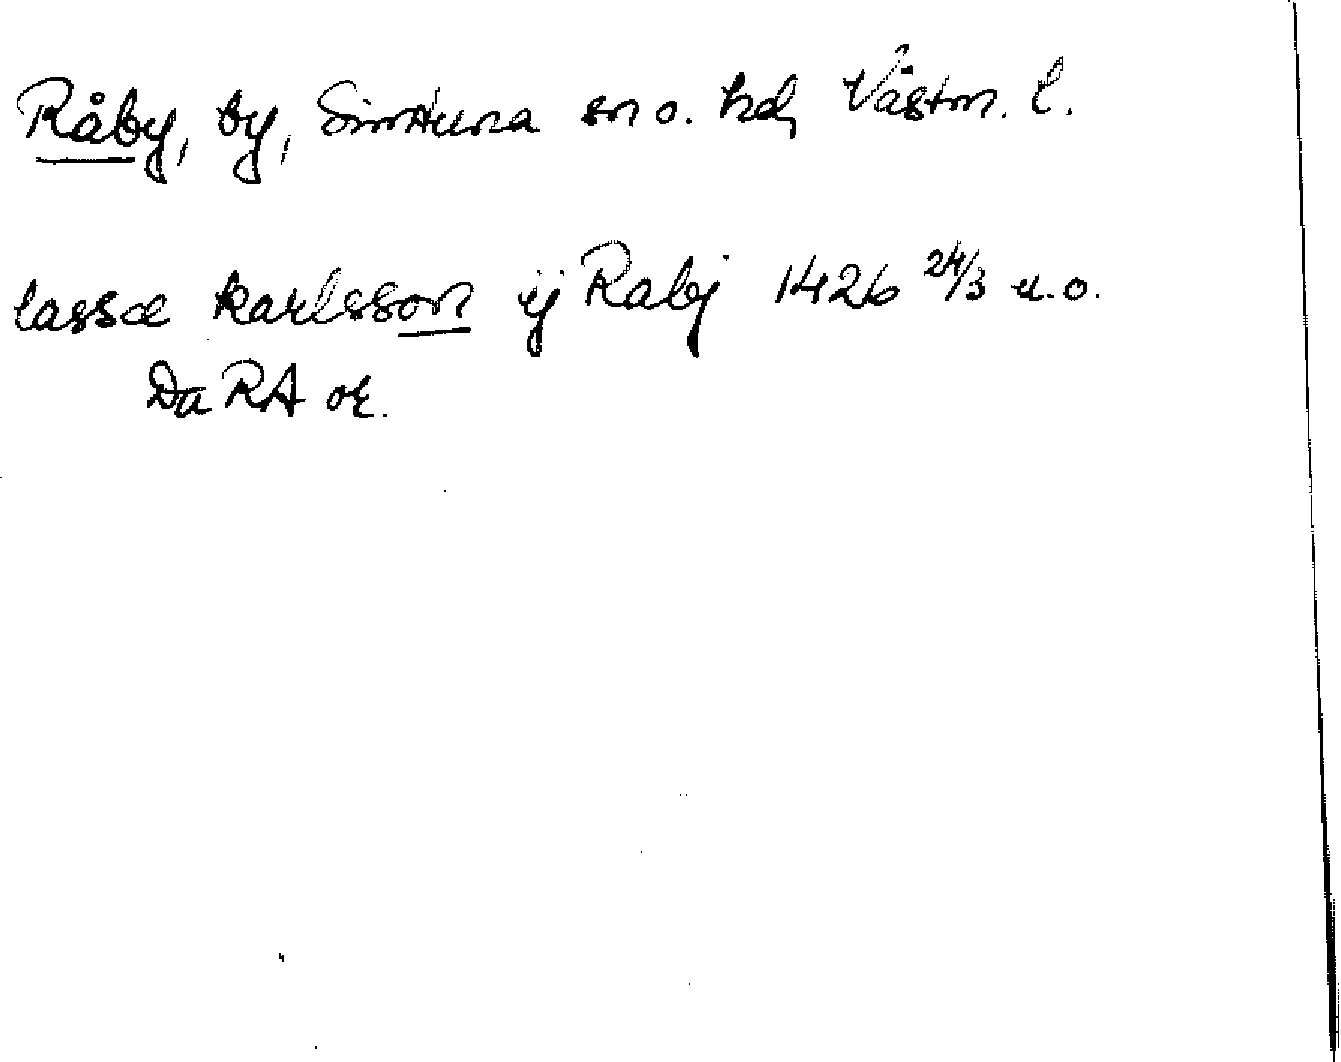 Råby, by, Simtuna sn o. hd, Västm. l.
lasse karlsson ij Rabj 1426 24/3 u.o.
Da RA or.